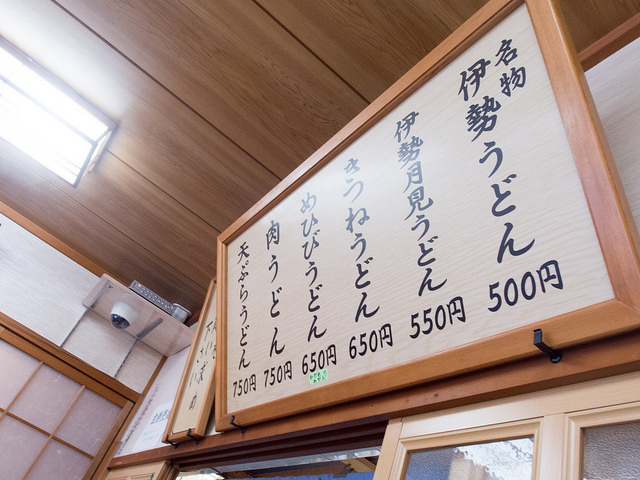 名物
伊勢うどん 500円
伊勢月見うどん 550円
きつねうどん 650円
めひびうどん 650円
肉うどん 750円
天ぷらうどん 750円